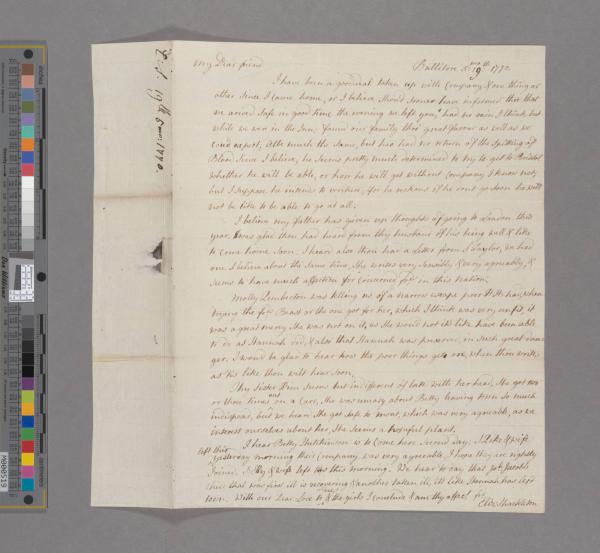 My Dear friend
Balliton 5mo 19th 1770
I have been a good deal taken up with Company & one thing or
other since I came home, or I believe should sooner have informed thee that
we arrived safe in good time the morning we left you, had no rain I think, but
while we wer in the Inn; found our family thro' great favour as well as we
coud expect, Abb much the same, but has had no return of the spitting of
Blood since I believe, he seems pretty much determined to try to get to Bristol
whether he will be able, or how he will get without company I know not,
but I suppose he intends to venture, for he reckons if he dont go soon he will
not be like to be able to go at all.
I believe my father has given up thoughts of going to London this
year. I was glad thou had heard from thy husband of his being well & like
to come home soon, I heard also thou had a Letter from S Taylor, we had
one I believe about the same time, She writes very sensibly & very agreeably, &
seems to have much affection for & concerned for in this Nation.
Molly Pemberton was telling us of a narrow escape poor H H had, when
trying the for the one got for her, which I think was very unfit, it
was a great mercy She was not on it, as She would not it's like have been able
to do as Hannah did, & also that Hannah was preserved in such great dan-
ger. I woud be glad to hear how the poor things get on, when thou writes
as tis like thou wilt hear soon.
Thy Sister Ann seems but indifferent of late with her head, She got two
or three times out on a Carr, She was uneasy about Betty having been so much
indisposed, but we hear She got safe to , which was very agreeable, as we
interest ourselves about her, She seems a hopeful plant.
I hear Betty Hutchinson is to Come here second day; J Like & wife
left this yesterday morning their Company was very agreeable, I hope they are rightly
Joined. & wife left this this morning. We hear to say that
that was first ill is recovering & another taken ill, tis like Hannah has left
town. With our Dear Love to thee & the girls I conclude & am thy affect fr
Eliz Shackleton
E: S: 19th 5mo: 1770.
M000519